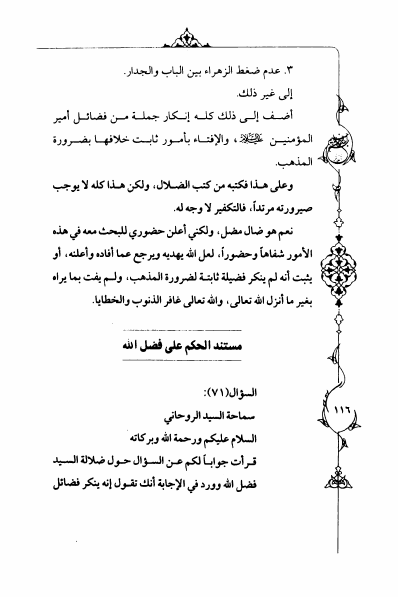 ٣. عدم ضغط الزهراء بين الباب والجدار.
إلى غير ذلك.
أضف إلى ذلك كله إنكار جملة من فضائل أمير
المؤمنين ، والإفتاء بأمور ثابت خلافها بضرورة
المذهب.
وعلى هذا فكتبه من كتب الضلال، ولكن هذا كله لا يوجب
صيرورته مرتداً، فالتكفير لا وجه له.
نعم هو ضال مضل، ولكني أعلن حضوري للبحث معه في هذه
الأمور شفاهاً وحضوراً، لعل الله يهديه ويرجع عما أفاده وأعلنه، أو
يثبت أنه لم ينكر فضيلة ثابتة لضرورة المذهب، ولم يفت بما يراه
بغير ما أنزل الله تعالى، والله تعالى غافر الذنوب والخطايا.
مستند الحكم على فضل الله
السؤال(٧١):
سماحة السيد الروحاني
السلام عليكم ورحمة الله وبركاته
قرأت جواباً لكم عن السؤال حول ضلالة السيد
فضل الله وورد في الإجابة أنك تقول إنه ينكر فضائل
١١٦